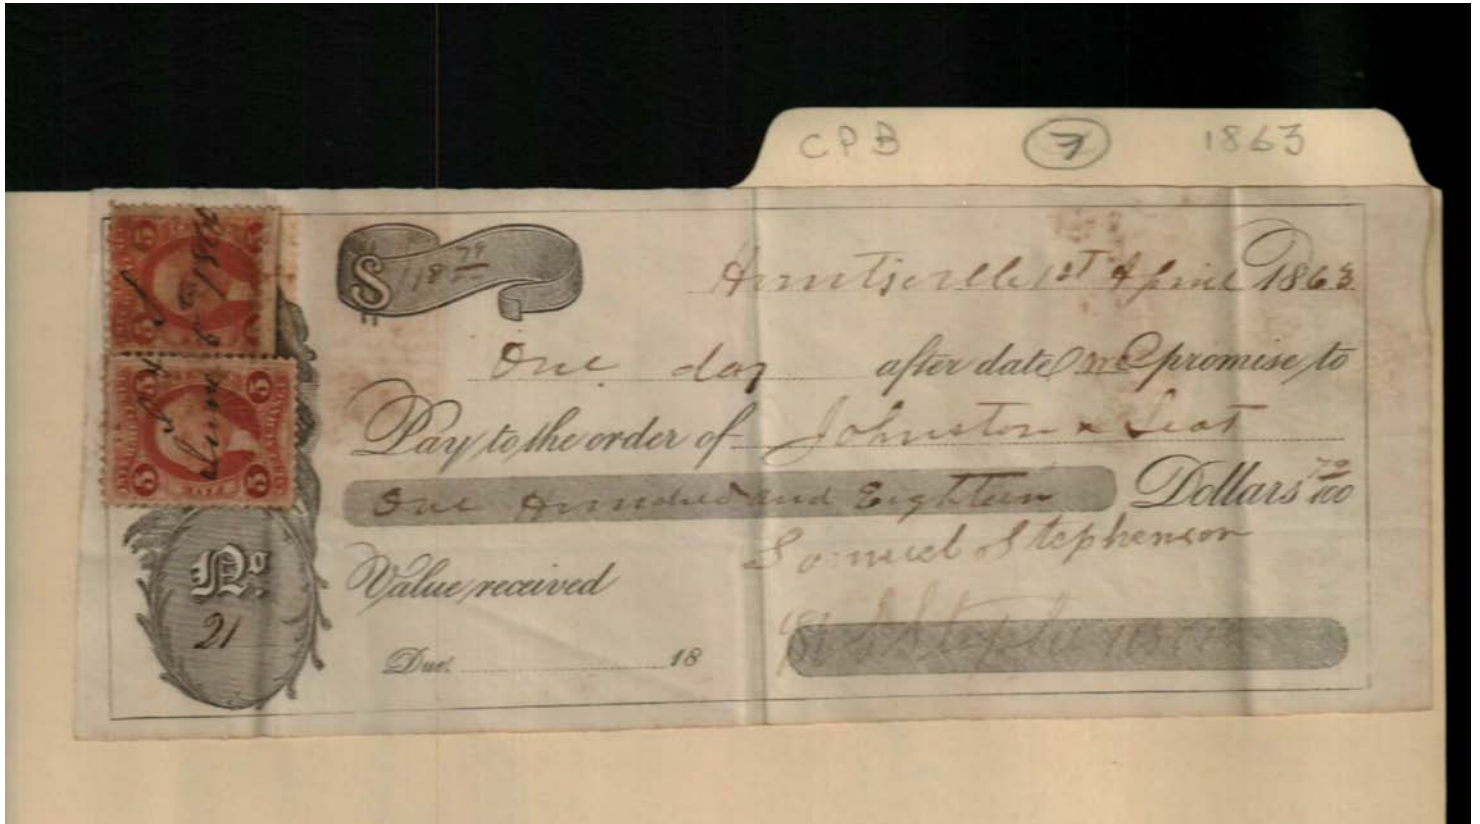 CPB 7 1863
$118 79
Huntsville 1st April 1863
One day after date we promise to
Pay to the order of Johnston & Seat
One Hundred and Eighteen Dollars 79/100
Samuel Stephenson
Value received
Stephenson
No.
21
Due. 18